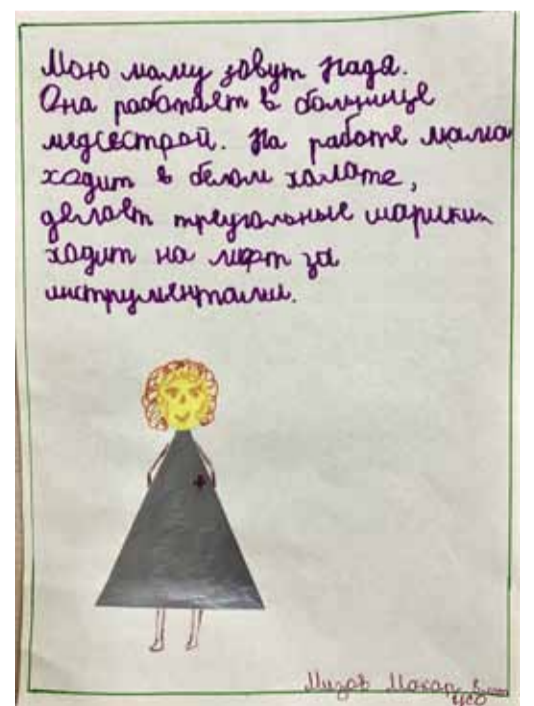 Мою маму зовут Надя.
Она работает в больнице
медсестрой. На работе мама
ходит в белом халате,
делает треугольные шарики
ходит на лифт за
инструментами.
Макар